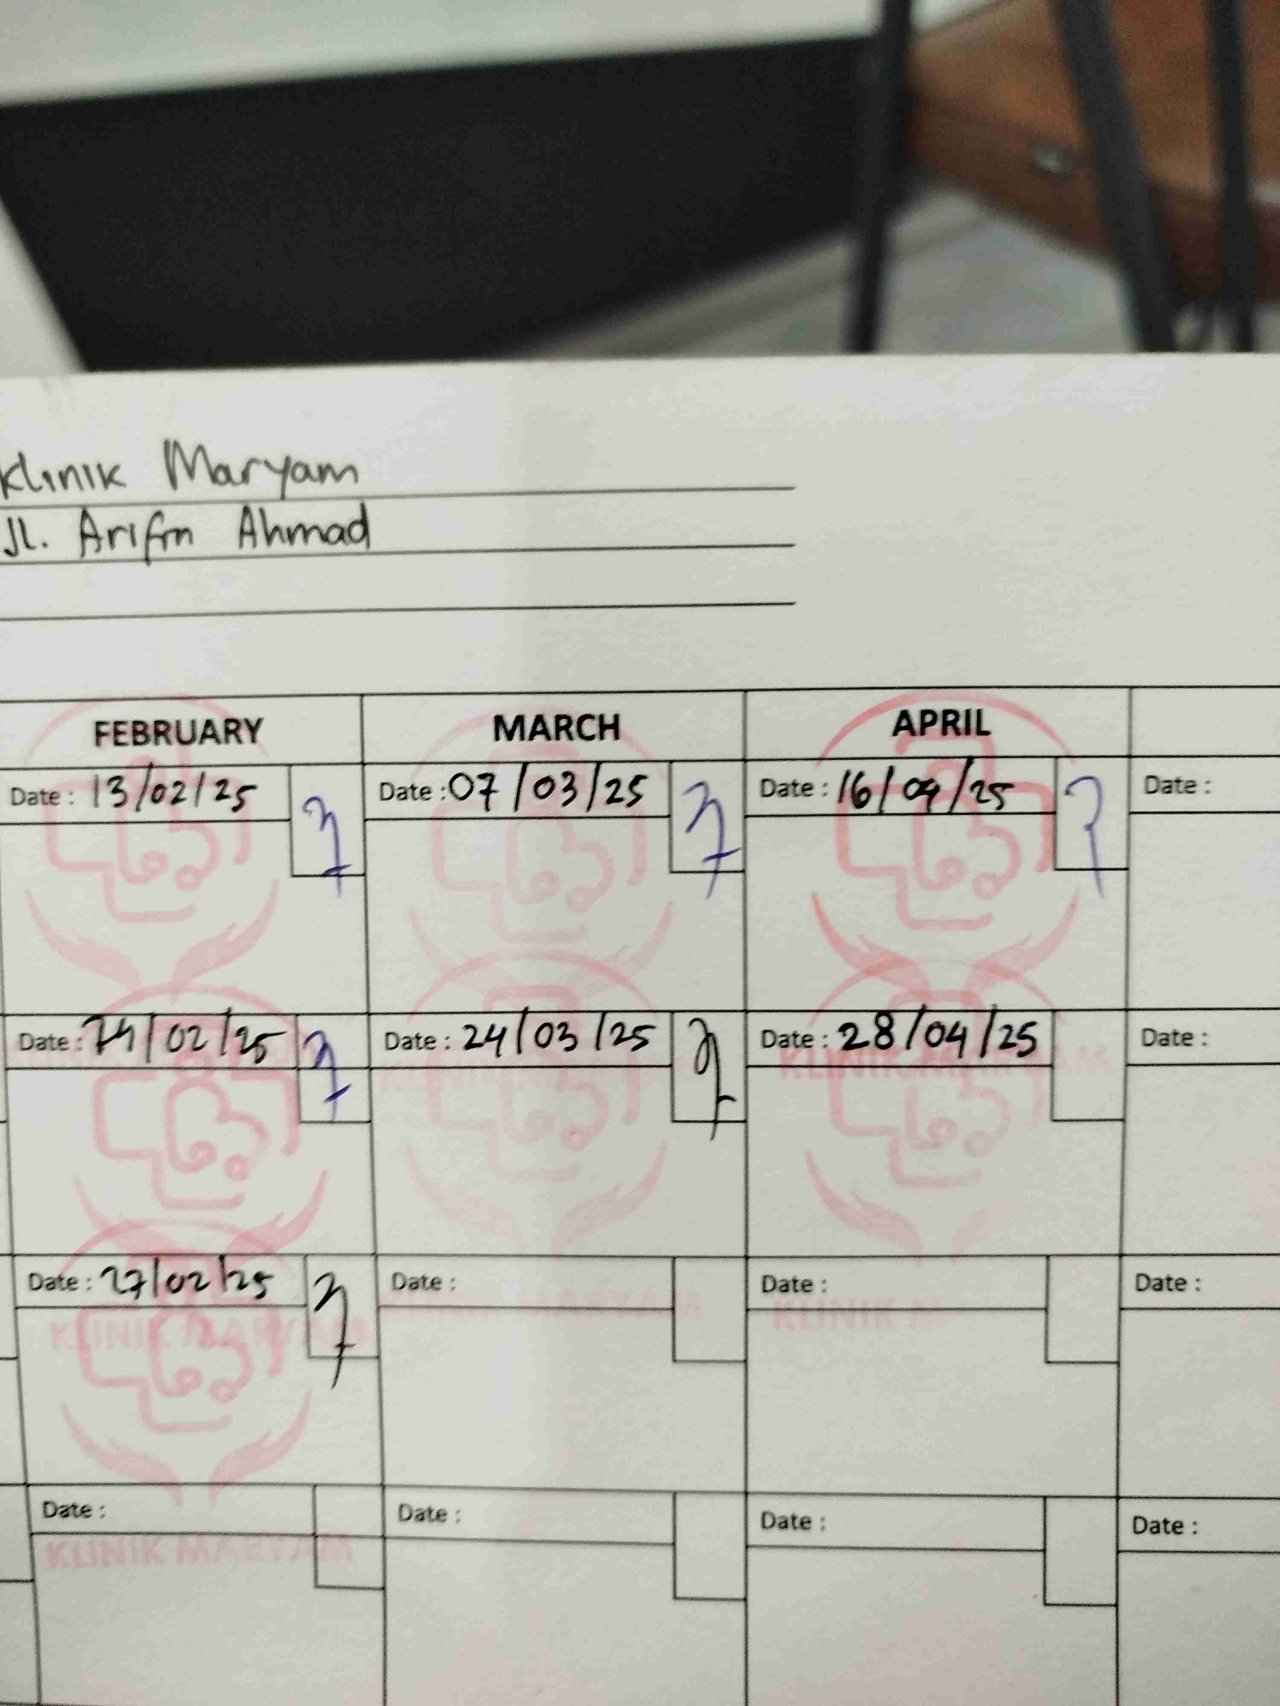 Klinik Maryam
Jl. Arifin Ahmad
FEBRUARY MARCH APRIL
Date : 13/02/25 Date : 07/03/25 Date : 16/04/25 Date :
Date : 24/02/25 Date : 24/03/25 Date : 28/04/25 Date :
KLINIK MARYAM
Date : 27/02/25 Date : Date : Date :
KLINIK MARYAM MARYAM KLINIK M
Date : Date : Date : Date :
KLINIK MARYAM